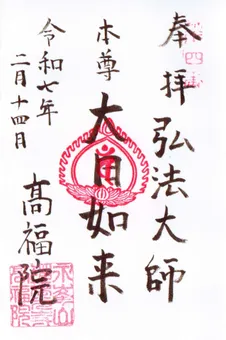 奉拝
弘法大師
本尊
大日如来
令和七年
二月十四日
高福院